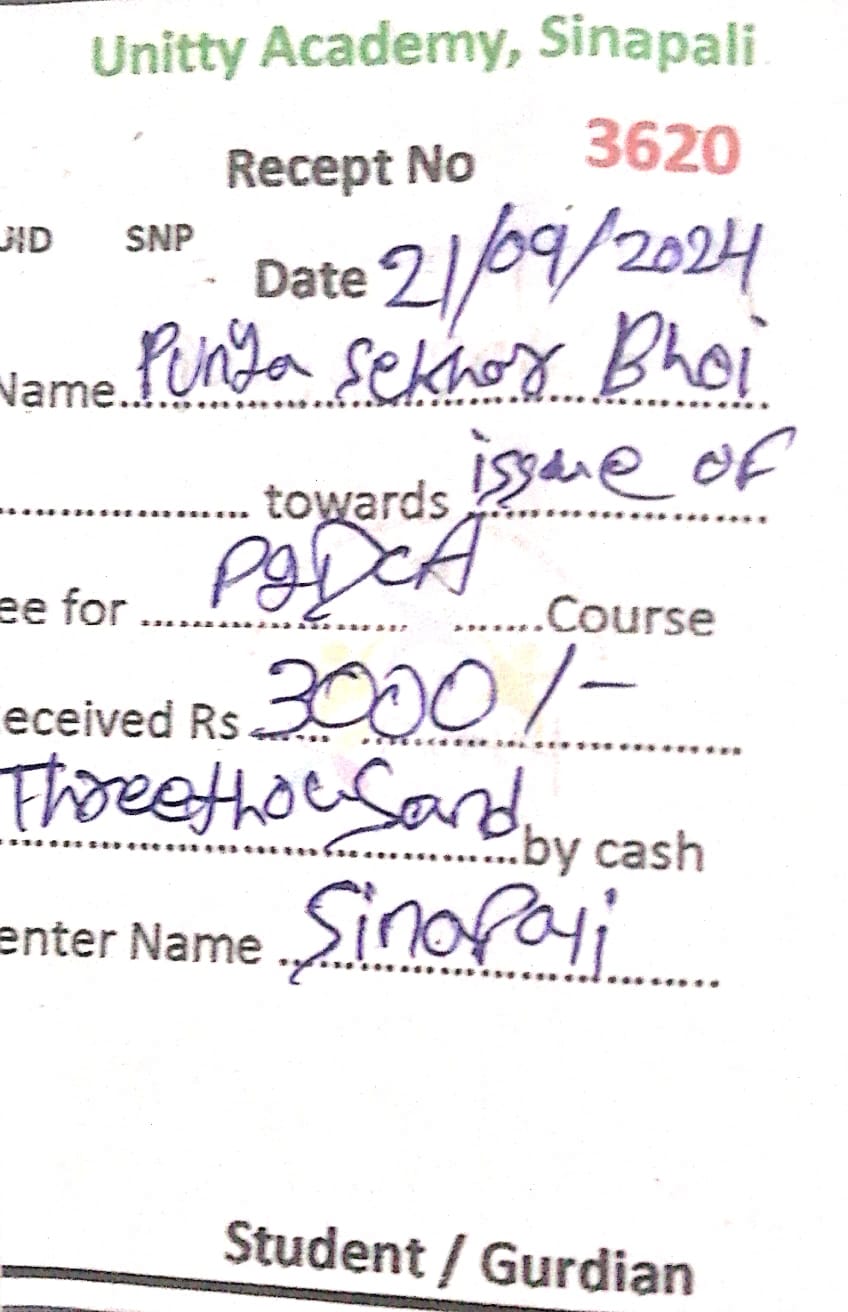 Unitty Academy, Sinapali
Recept No 3620
UID SNP
Date 21/09/2024
Name Punya Sekhor Bhoi
towards issue of
ee for PgDCA Course
eceived Rs 3000/-
Threethousand by cash
enter Name Sinapali
Student / Gurdian